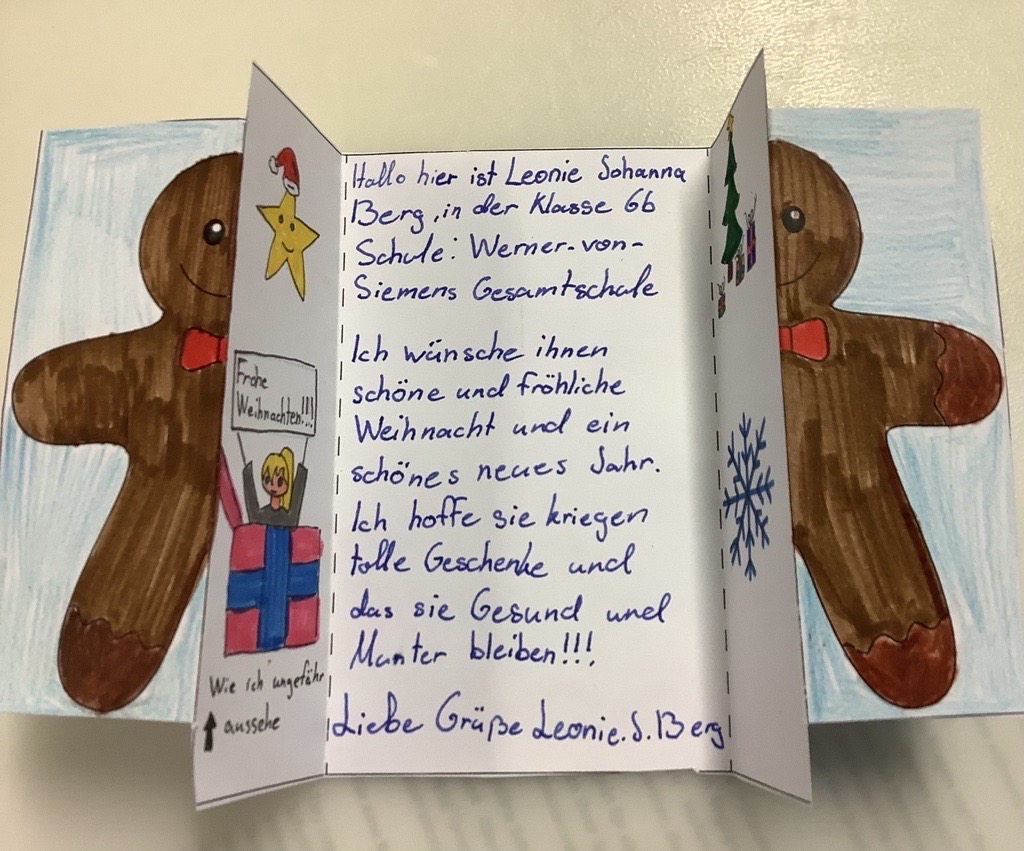 Frohe
Weihnachten!!!
Wie ich ungefähr
aussehe
Hallo hier ist Leonie Johanna
Berg, in der Klasse 6b
Schule: Werner-von-
Siemens Gesamtschule
Ich wünsche ihnen
schöne und fröhliche
Weihnacht und ein
schönes neues Jahr.
Ich hoffe sie kriegen
tolle Geschenke und
das sie Gesund und
Munter bleiben!!!
Liebe Grüße Leonie. J. Berg